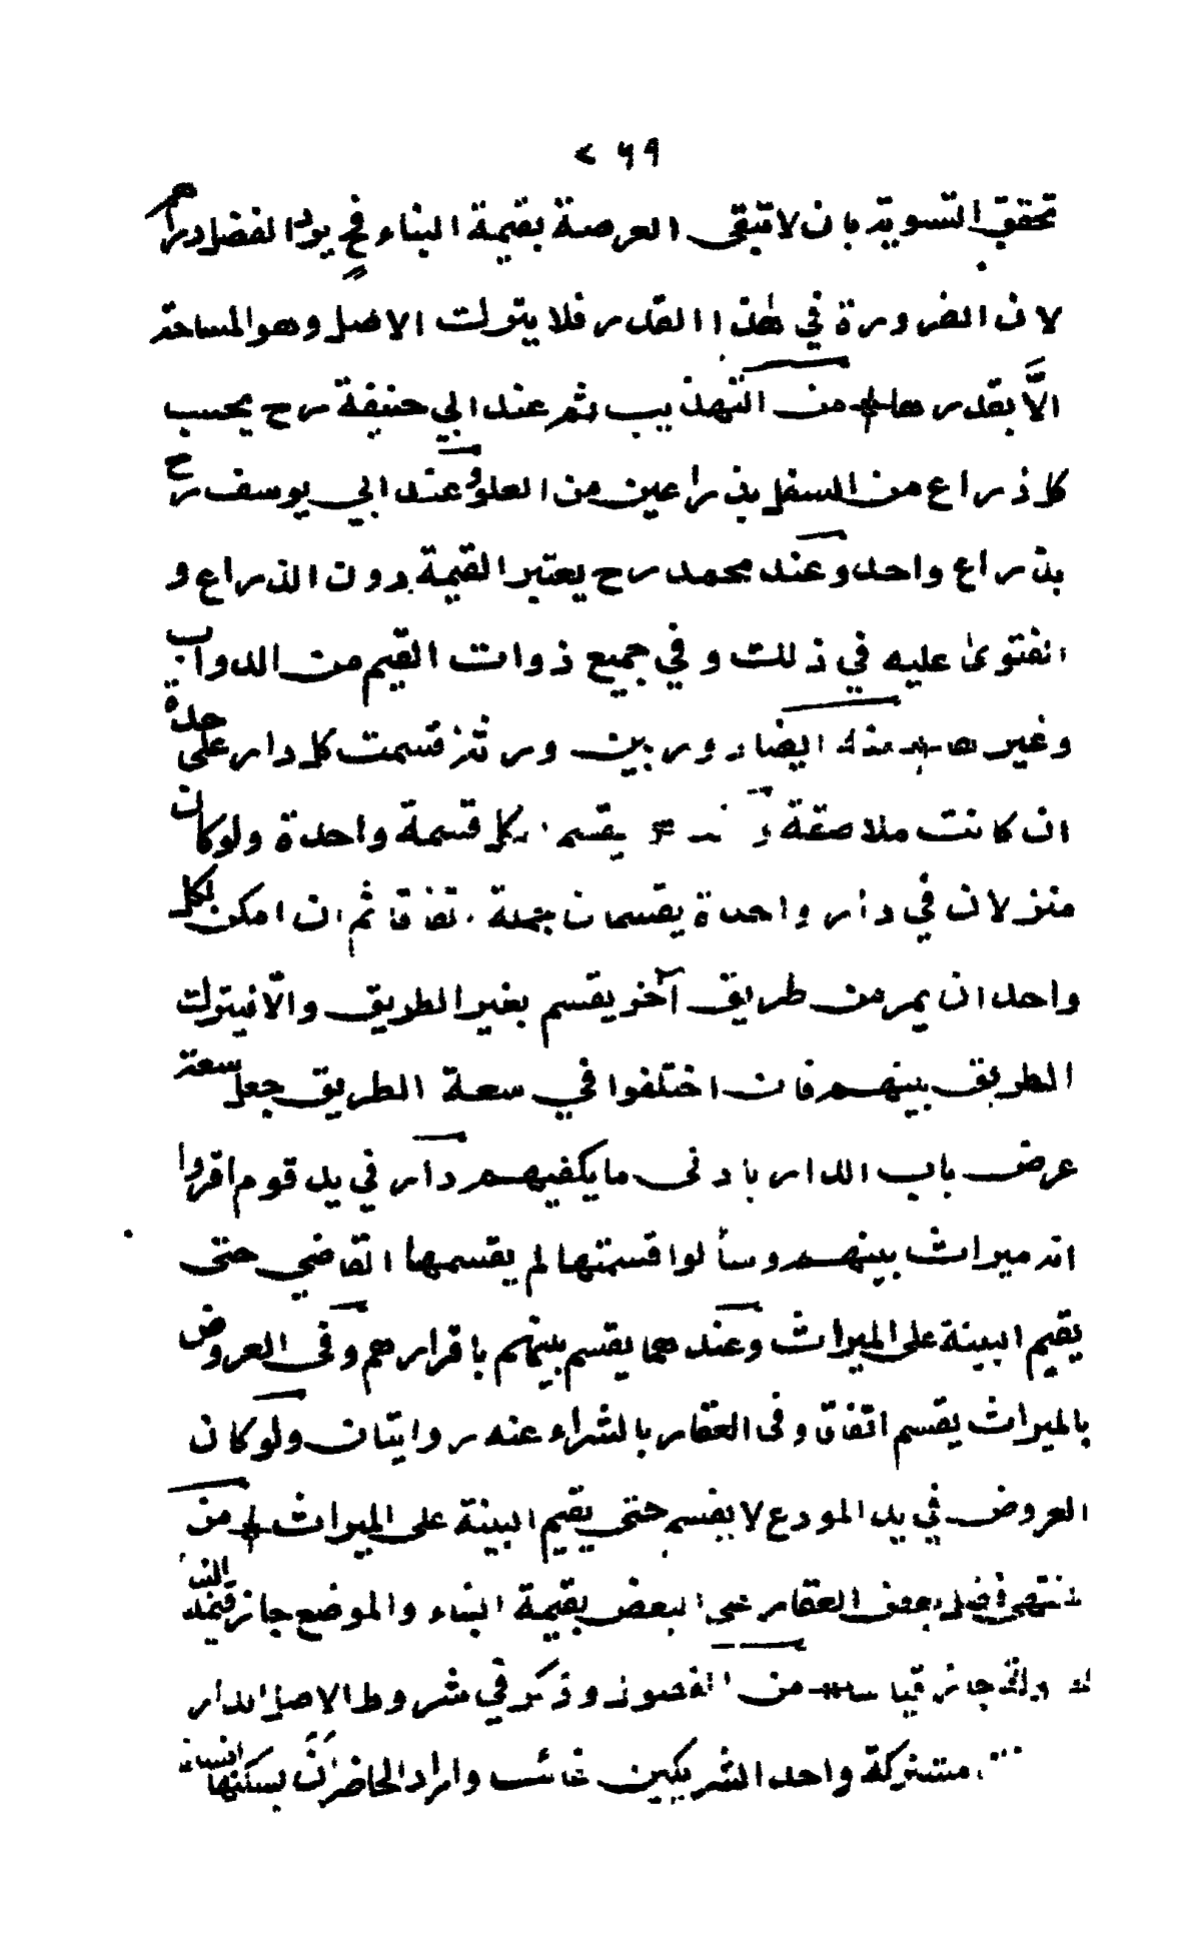 ٢٦٩
تحقق التسوية بان لا تبقى العرصة بقيمة البناء فح يرد الفضل دراهم
لان الضرورة في هذا القدر فلا يترك الاصل وهو المساحة
الَّا بقدرها من التهذيب ثم عند ابي حنيفة رح يحسب
كل ذراع من السفل بذراعين من العلو وعند ابي يوسف رح
بذراع واحد وعند محمد رح يعتبر القيمة دون الذراع و
الفتوى عليه في ذلك وفي جميع ذوات القيم من الدواب
وغيرها منه ايضا دور بين ورثة قسمت كل دار على حدة
ان كانت ملاصقة يقسم كل قسمة واحدة ولو كان
منزلان في دار واحدة يقسمان جملة اتفاقا ثم ان امكن لكل
واحد ان يمر من طريق آخر يقسم بغير الطريق والّا فيترك
الطريق بينهم فان اختلفوا في سعة الطريق جعل سعة
عرض باب الدار بادنى ما يكفيهم دار في يد قوم اقروا
انه ميراث بينهم وسألوا قسمتها لم يقسمها القاضي حتى
يقيم البينة على الميراث وعندهما يقسم بينهم باقرارهم وفى العروض
بالميراث يقسم اتفاقا وفى العقار بالشراء عنه روايتان ولو كان
العروض في يد المودع لا يقسم حتى يقيم البينة على الميراث من
فضل بعض العقار على البعض بقيمة البناء والموضع جاز قيمة البناء
جاز قياسا من الفصول وذكر في شروط الاصل الدار
مشتركة واحد الشريكين غائب واراد الحاضر ان يسكنها انسانا